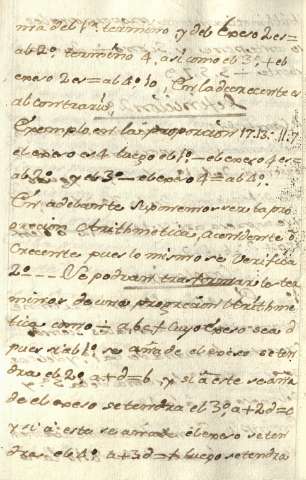 ma del 1º. termino y del exeso 2 es=
al 2º. termino 4, asi como el 3º. + el
exeso 2 es = al 4º. 10, En la decrecente es
al contrario,
Exemplo en la proporcion 17.13.:11.7
el exeso es 4 luego el 1º. – el exeso 4 es =
al 2º. y el 3º – el exeso 4 = al 4º.
En adelante supondremos ser la pro
gresion Arithmetica, acendente ò
Crecente pues lo mismo se verifica
2º. – – Se podran trasformar los ter
minos de una progresion Arithme
tica como ÷ a,b,c,f cuyo exeso sea d
pues si al 1º. se añade el exeso se ten
dra el 2º. a+d=b, y si à este se aña
de el exeso se tendra el 3º a+2d=c
y si a esta se añade el exeso se ten
dra el 4º. a+3d=f luego se tendra